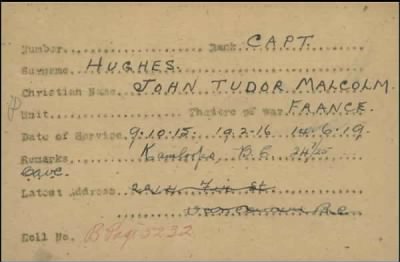 Number.......... Rank CAPT.
Surname HUGHES.
Christian Name JOHN TUDOR MALCOLM.
Unit.......... Theatre of war FRANCE.
Date of Service 9.10.15. 19.2.16 14.6.19.
Remarks Kamloops, B.C. 24/1/25
Latest Address St.
B.C.
Roll No. B Page 5232